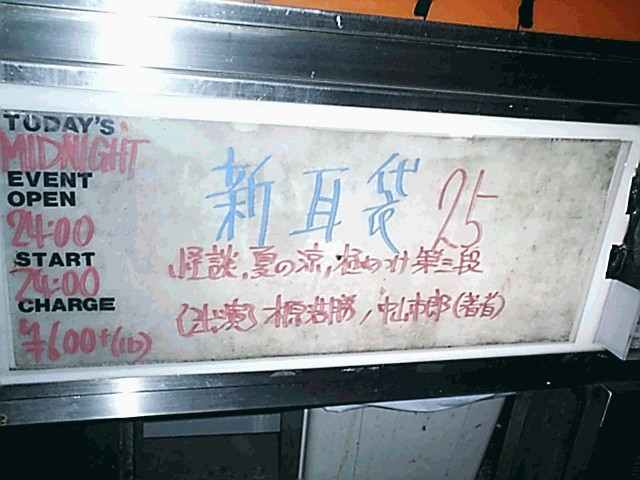 TODAY'S
MIDNIGHT
EVENT
OPEN
24:00
START
24:00
CHARGE
¥1600+(1D)
新耳袋 25
怪談,夏の涼,極めつけ第三段
(出演) 木原浩勝/中山市郎(著者)